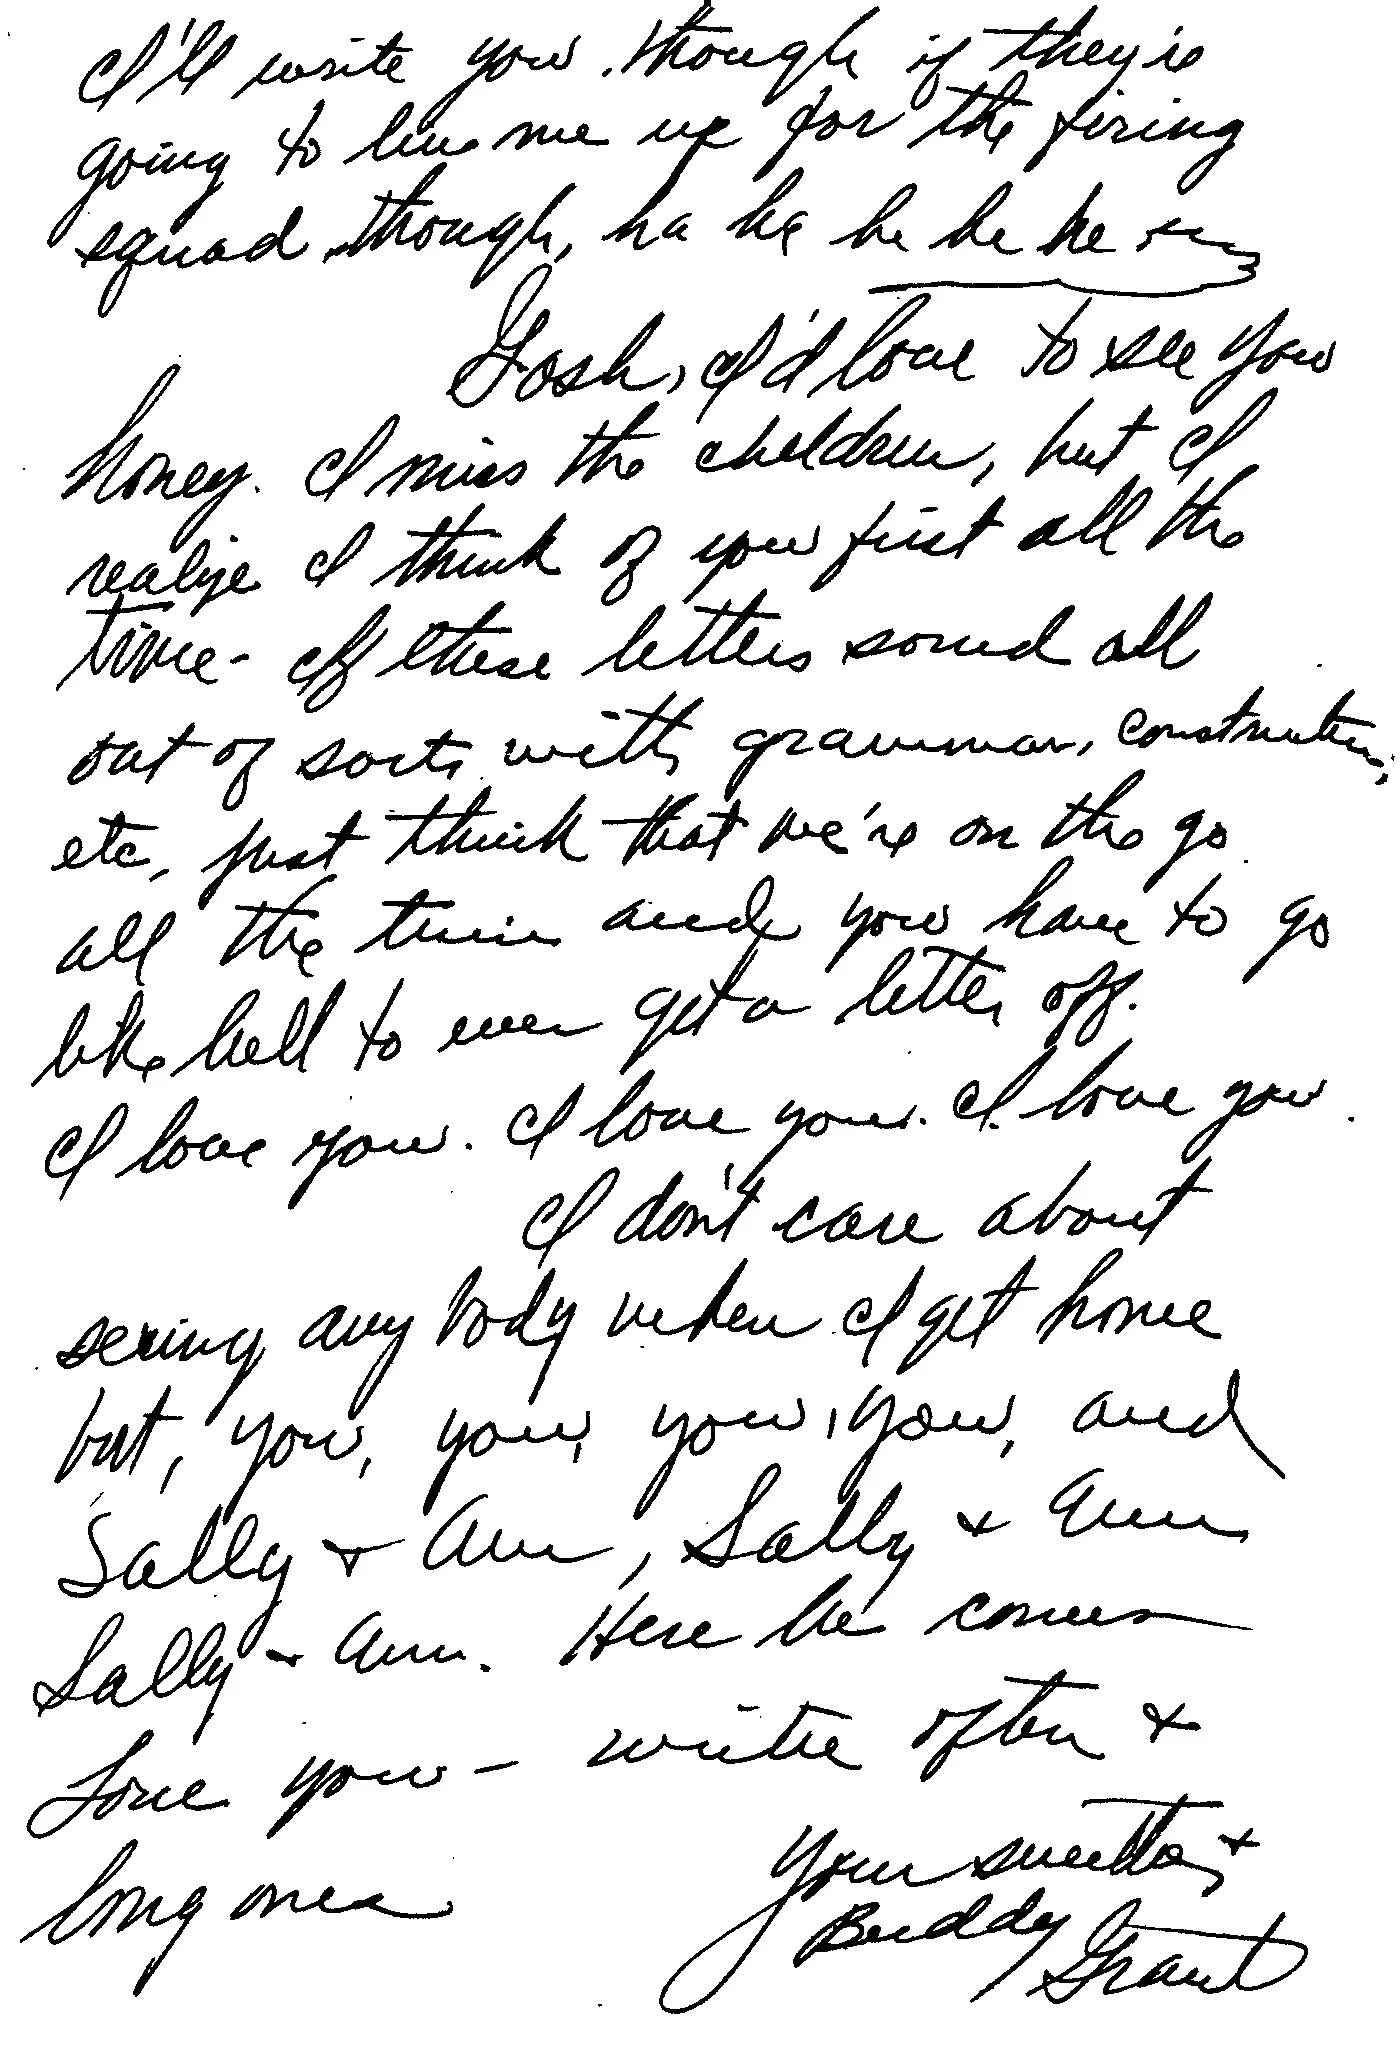 I'll write you though if they're
going to line me up for the firing
squad though, ha ha he he he
Gosh, I'd love to see you
honey. I miss the children, but I
realize I think of you first all the
time - If these letters sound all
out of sorts with grammar, construction,
etc, just think that we're on the go
all the time and you have to go
like hell to ever get a letter off.
I love you. I love you. I love you.
I don't care about
seeing any body when I get home
but, you, you, you, you, and
Sally & Ann, Sally & Ann
Sally & Ann. Here he comes
Love you - write often &
long ones
Your sweetie &
Buddy
Grant